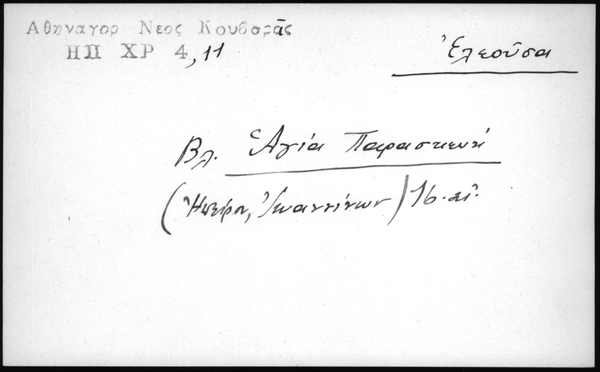 Αθηναγορ Νεος Κουβαρᾶς
ΗΠ ΧΡ 4,11
Ἐλεοῦσα
Βλ. Ἁγία Παρασκευή
(Ἠπείρου, Ἰωαννίνων) 16. αἰ.